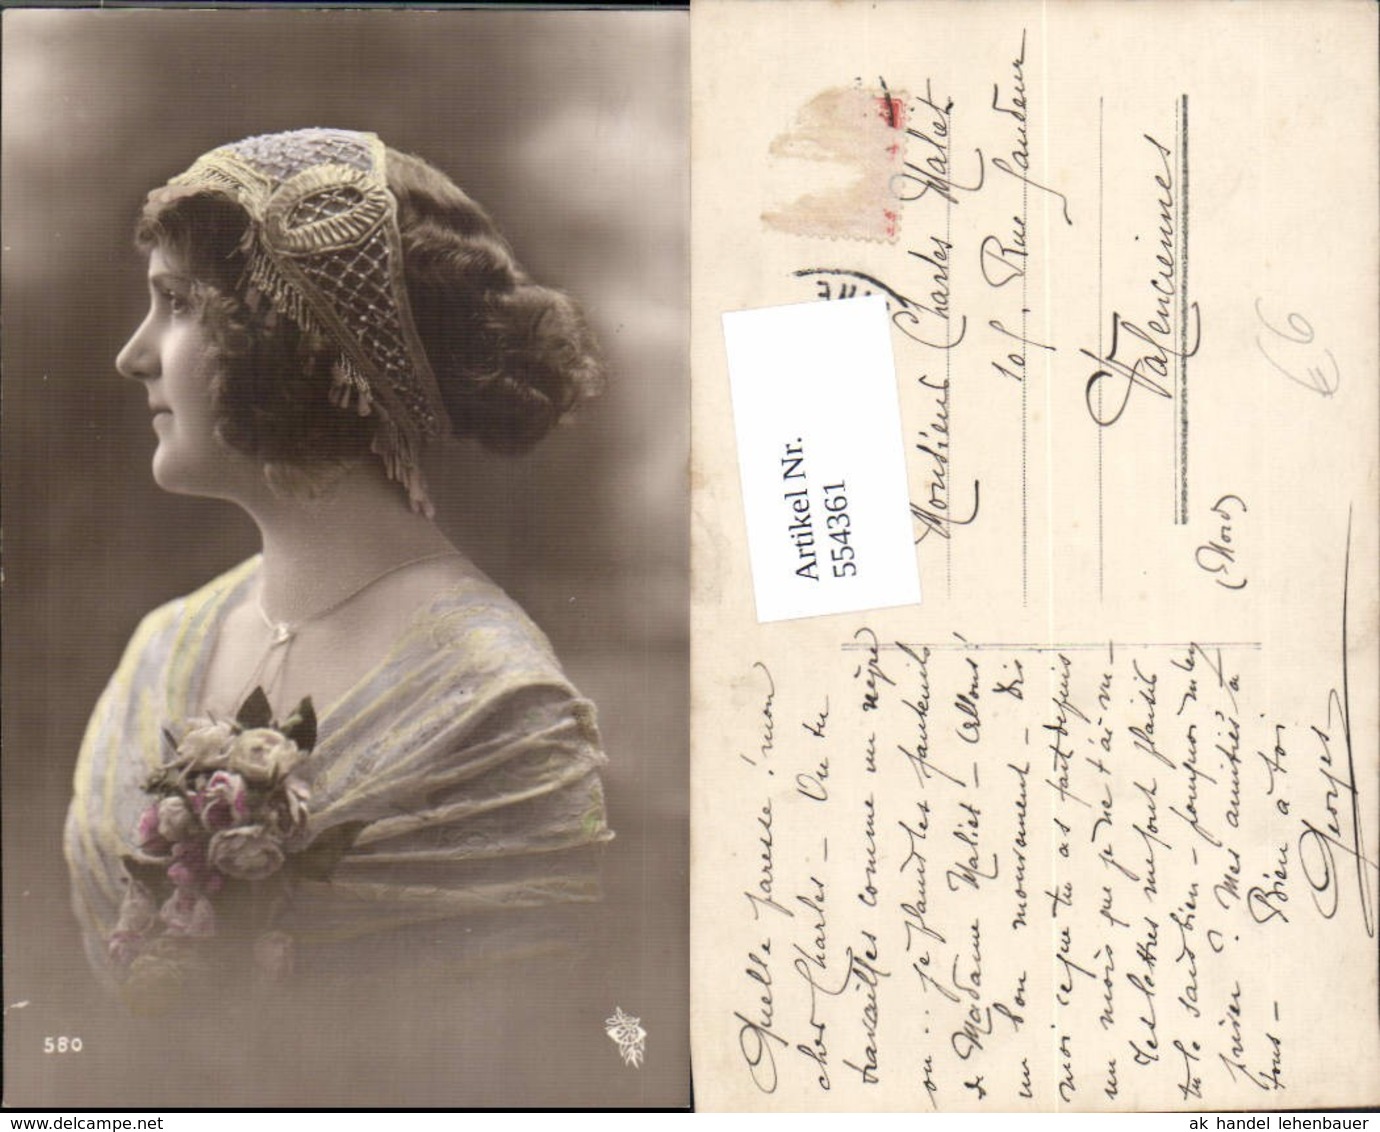 580
Artikel Nr.
554361
Monsieur Charles Maliet
101. Rue
Valenciennes
(Nord)
€ 6
Quelle paresse! mon
cher Charles — Ou tu
travailles comme un nègre
ou .. je plaind les fauteuils
de Madame Maliet — Allons!
un bon mouvement — Dis
moi ce que tu as fait depuis
un mois que je ne t'ai vu —
Tes lettres me font plaisir
tu le sais bien — pourquoi m'en
priver? Mes amitiés à
tous — Bien à toi
Georges
ak handel lehenbauer